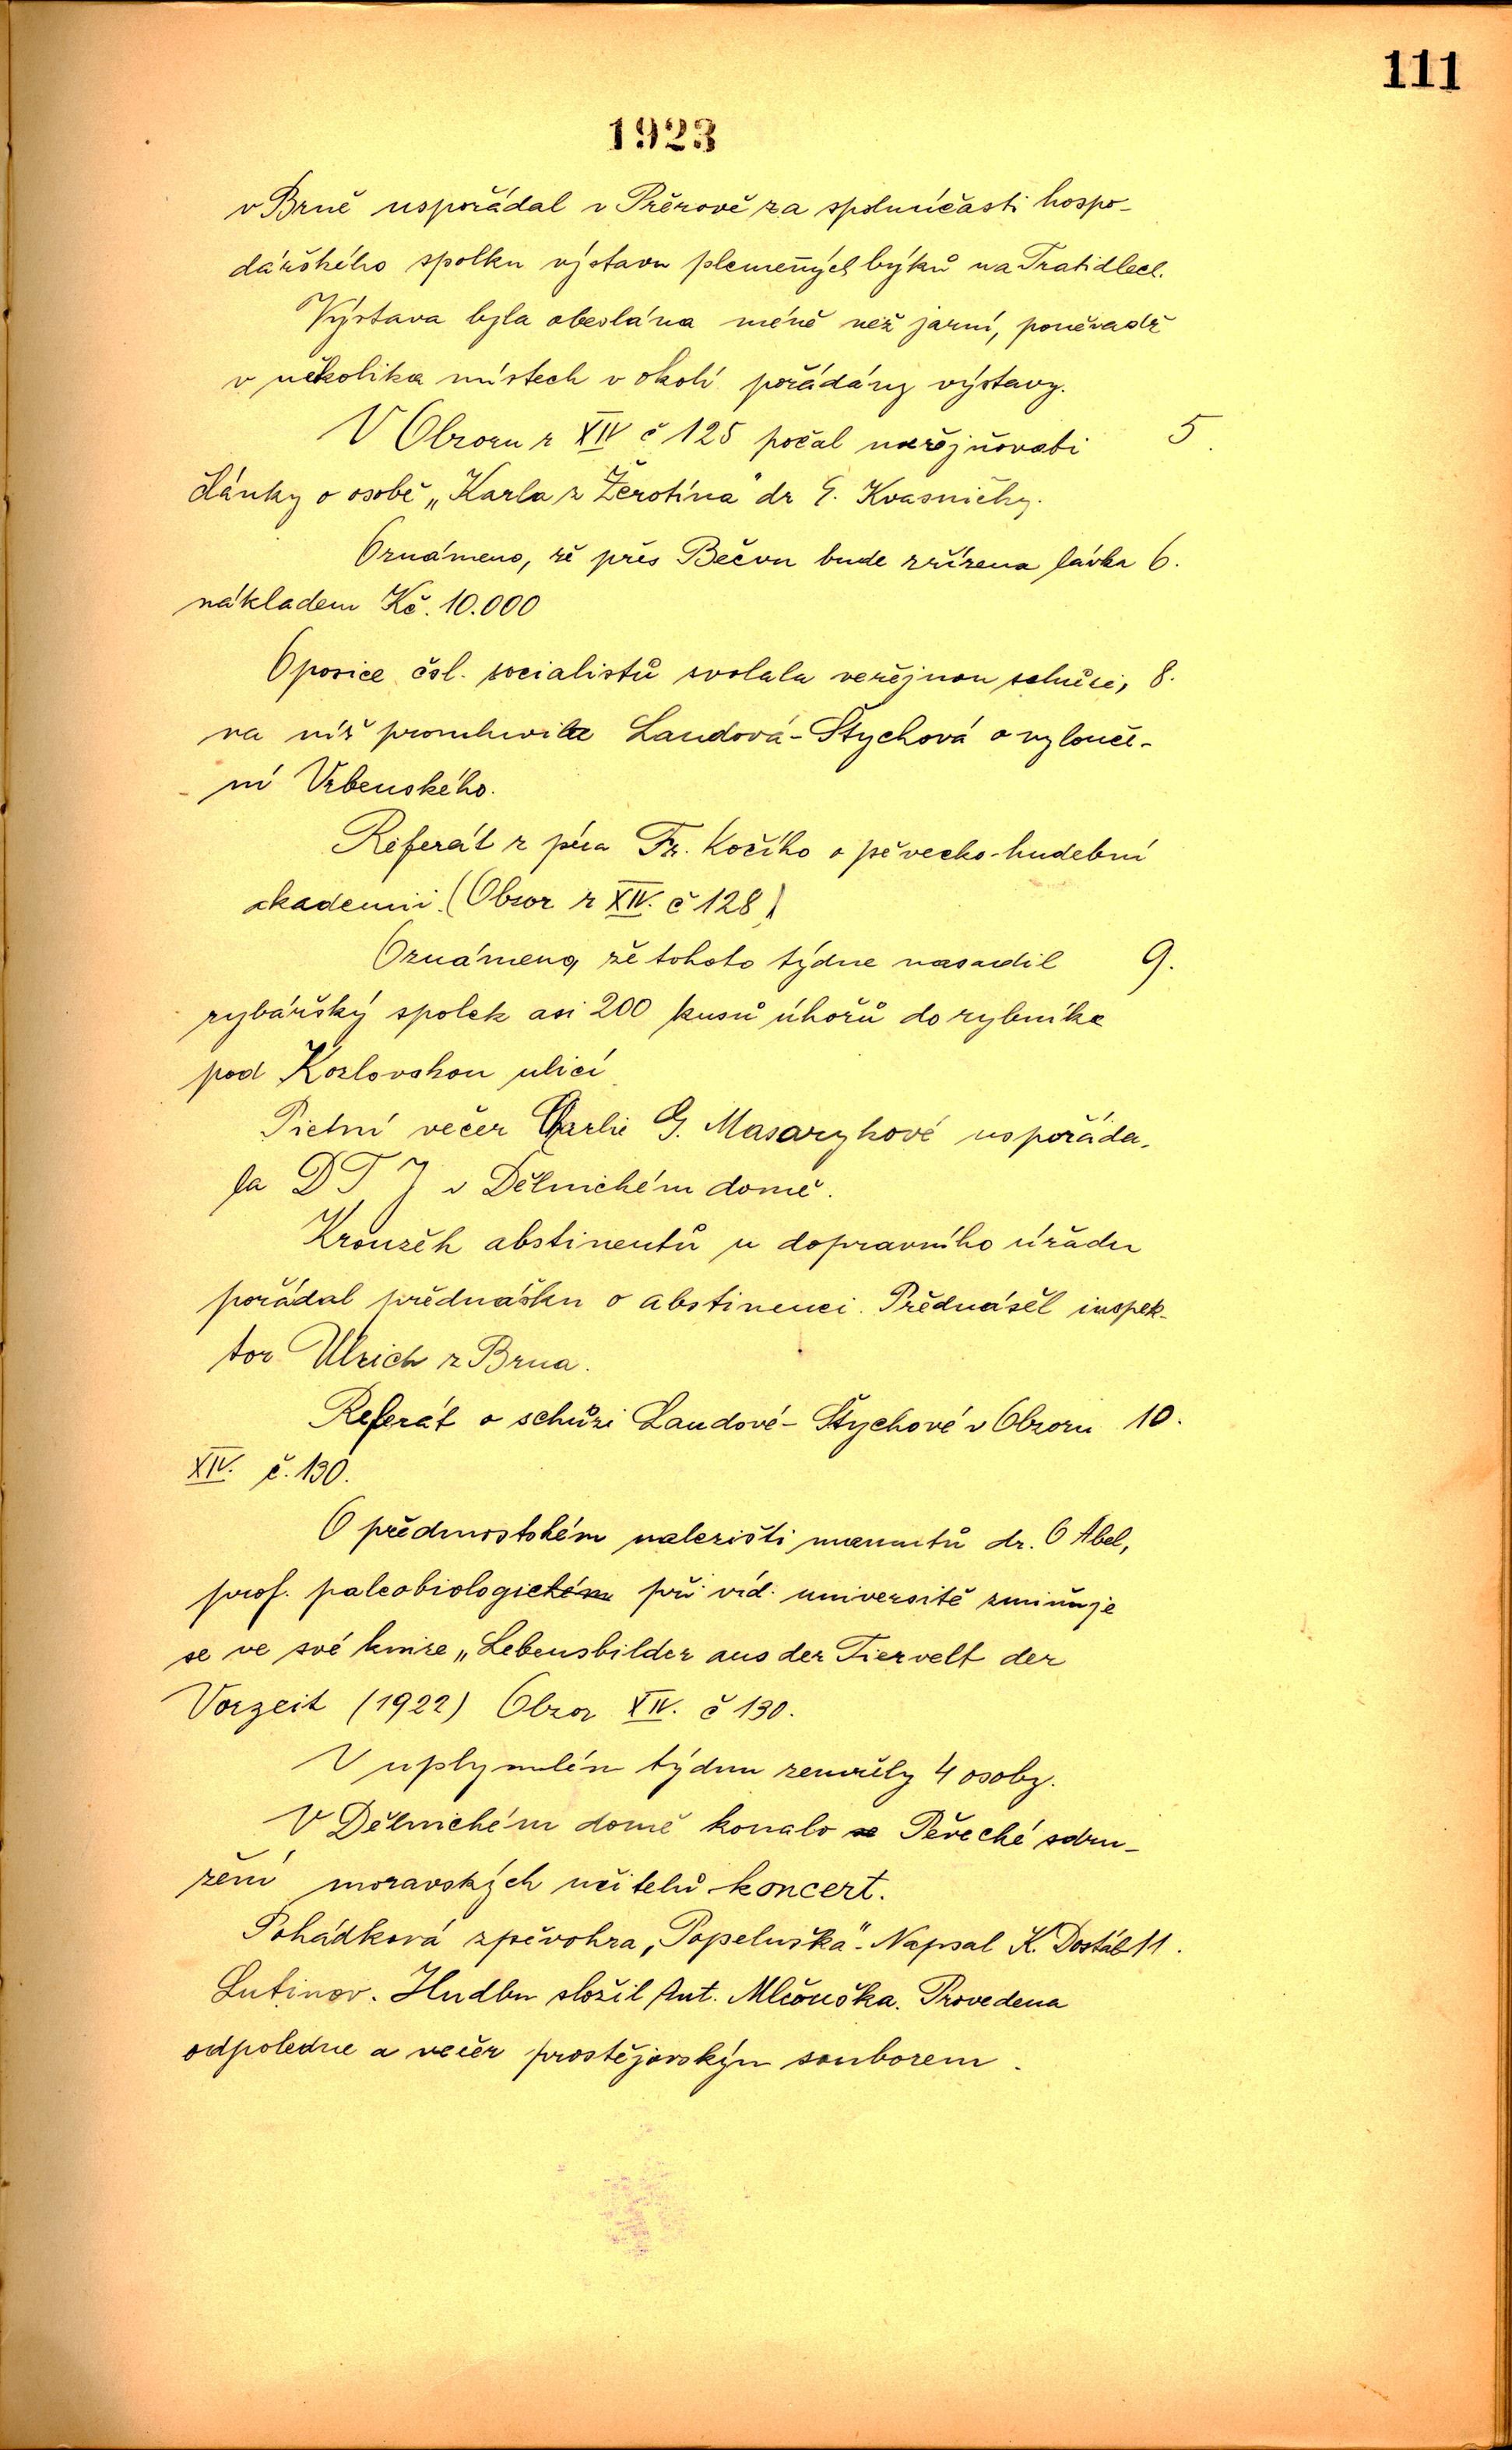 111
1923
v Brně uspořádal v Přerově za spoluúčasti hospo-
dářského spolku výstavu plemenných býků na Tratidlech.
Výstava byla obeslána méně než jarní, poněvadž
v několika místech v okolí pořádány výstavy.
V Obzoru r XIV č 125 počal uveřejňovati 5.
články o osobě „Karla z Žerotína" dr G. Kvasničky.
Oznámeno, že přes Bečvu bude zřízena lávka 6.
nákladem Kč. 10.000
Oposice čsl. socialistů svolala veřejnou schůzi, 8.
na níž promluvila Landová-Štychová o vylouče-
ní Vrbenského.
Referát z péra Fr. Kočího o pěvecko-hudební
akademii. (Obzor r XIV. č 128)
Oznámeno, že tohoto týdne nasadil 9.
rybářský spolek asi 200 kusů úhořů do rybníka
pod Kozlovskou ulicí
Pietní večer Charlie G. Masarykové uspořáda-
la D T J v Dělnickém domě.
Kroužek abstinentů u dopravního úřadu
pořádal přednášku o abstinenci. Přednášel inspek-
tor Ulrich z Brna.
Referát o schůzi Landové-Štychové v Obzoru 10.
XIV. č. 130.
O předmostském nalezišti mamutů dr. O Abel,
prof. paleobiologie při víd. universitě zmiňuje
se ve své knize „Lebensbilder aus der Tiervelt der
Vorzeit (1922) Obzor XIV. č 130.
V uplynulém týdnu zemřely 4 osoby.
V Dělnickém domě konalo se Pěvecké sdru-
žení moravských učitelů koncert.
Pohádková zpěvohra „Popeluška". Napsal K. Dostál 11.
Lutinov. Hudbu složil Ant. Mlčouška. Provedena
odpoledne a večer prostějovským souborem.